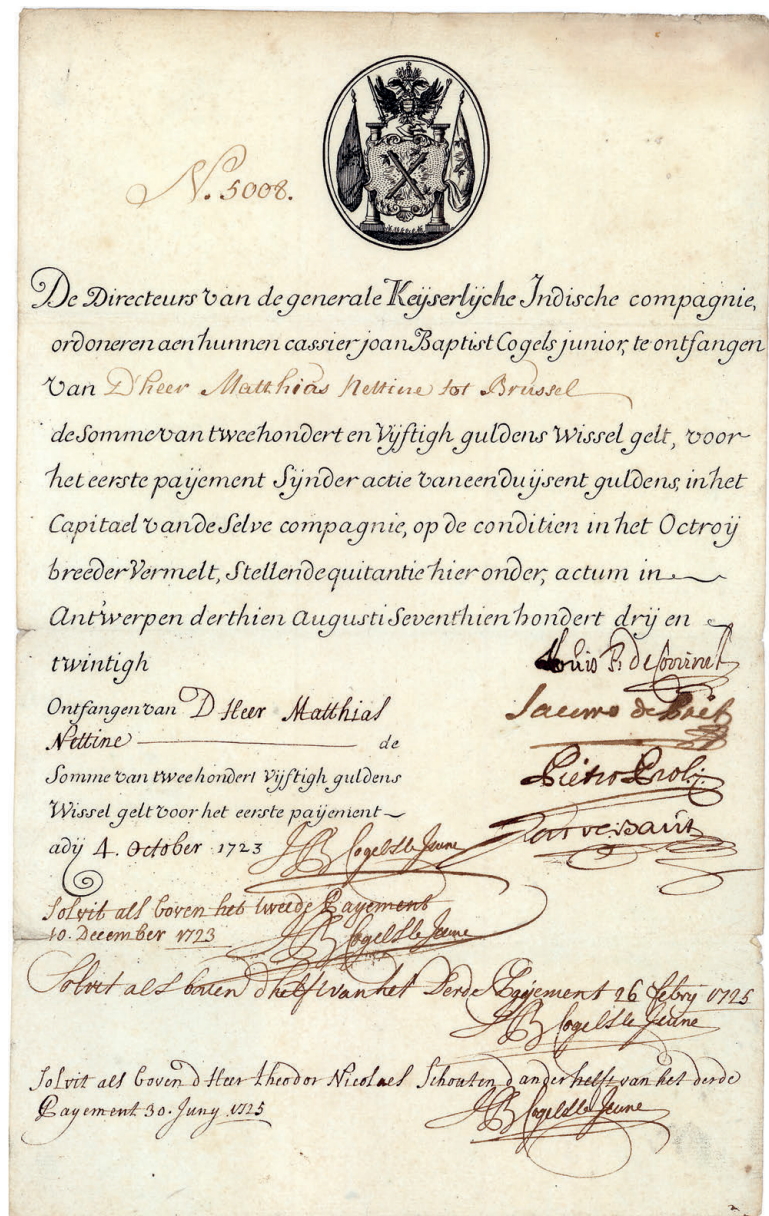 N. 5008.
De Directeurs van de generale Keÿserlÿche Indische compagnie,
ordoneren aen hunnen cassier joan Baptist Cogels junior, te ontfangen
van D'heer Matthias Nettine tot Brussel
de Somme van tweehondert en Vÿftigh guldens Wissel gelt, voor
het eerste paÿement Sÿnder actie van een duÿsent guldens, in het
Capitael van de Selve compagnie, op de conditien in het Octroÿ
breeder Vermelt, Stellende quitantie hier onder, actum in
Antwerpen derthien Augusti Seventhien hondert drÿ en
twintigh
Louis F. de Coninck
Ontfangen van D Heer Matthias
Jacomo de Pret
Nettine de
Somme van tweehondert Vÿftigh guldens
Pietro Proli
Wissel gelt voor het eerste paÿement
adÿ 4. October 1723 JB Cogels le Jeune
Solvit als boven het tweede Payement
10. December 1723 JB Cogels le Jeune
Solvit als boven d'helft van het Derde Payement 26 febrÿ 1725
JB Cogels le Jeune
Solvit als boven d Heer theodor Nicolaes Schouten d'ander helft van het derde
Payement 30. Juny 1725 JB Cogels le Jeune